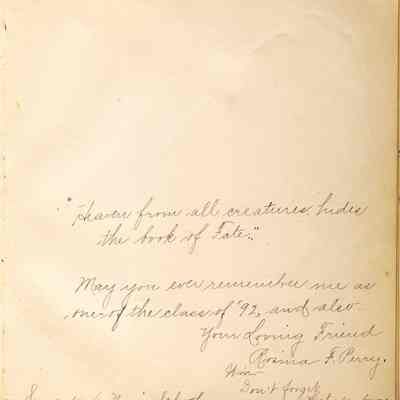 "Heaven from all creatures hides
the book of Fate."
May you ever remember me as
one of the class of '92, and also
Your Loving Friend
Rosina F. Perry.
Don't forget